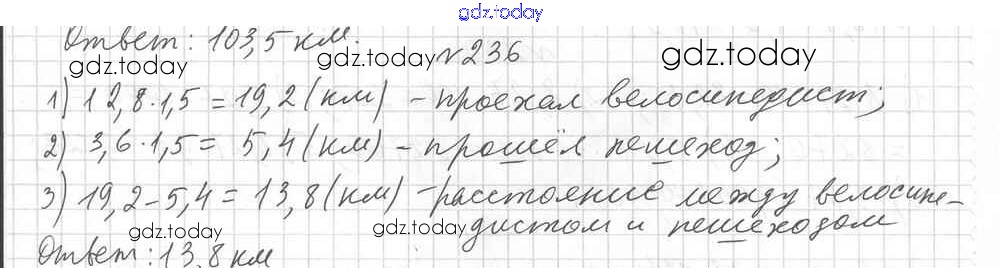 gdz.today
Ответ: 103,5 км.
gdz.today №236 gdz.today
1) 12,8·1,5=19,2(км) -проехал велосипедист;
2) 3,6·1,5= 5,4(км) -прошёл пешеход;
3) 19,2-5,4=13,8(км) -расстояние между велосипе-
gdz.today дистом и пешеходом gdz.today
Ответ: 13,8 км